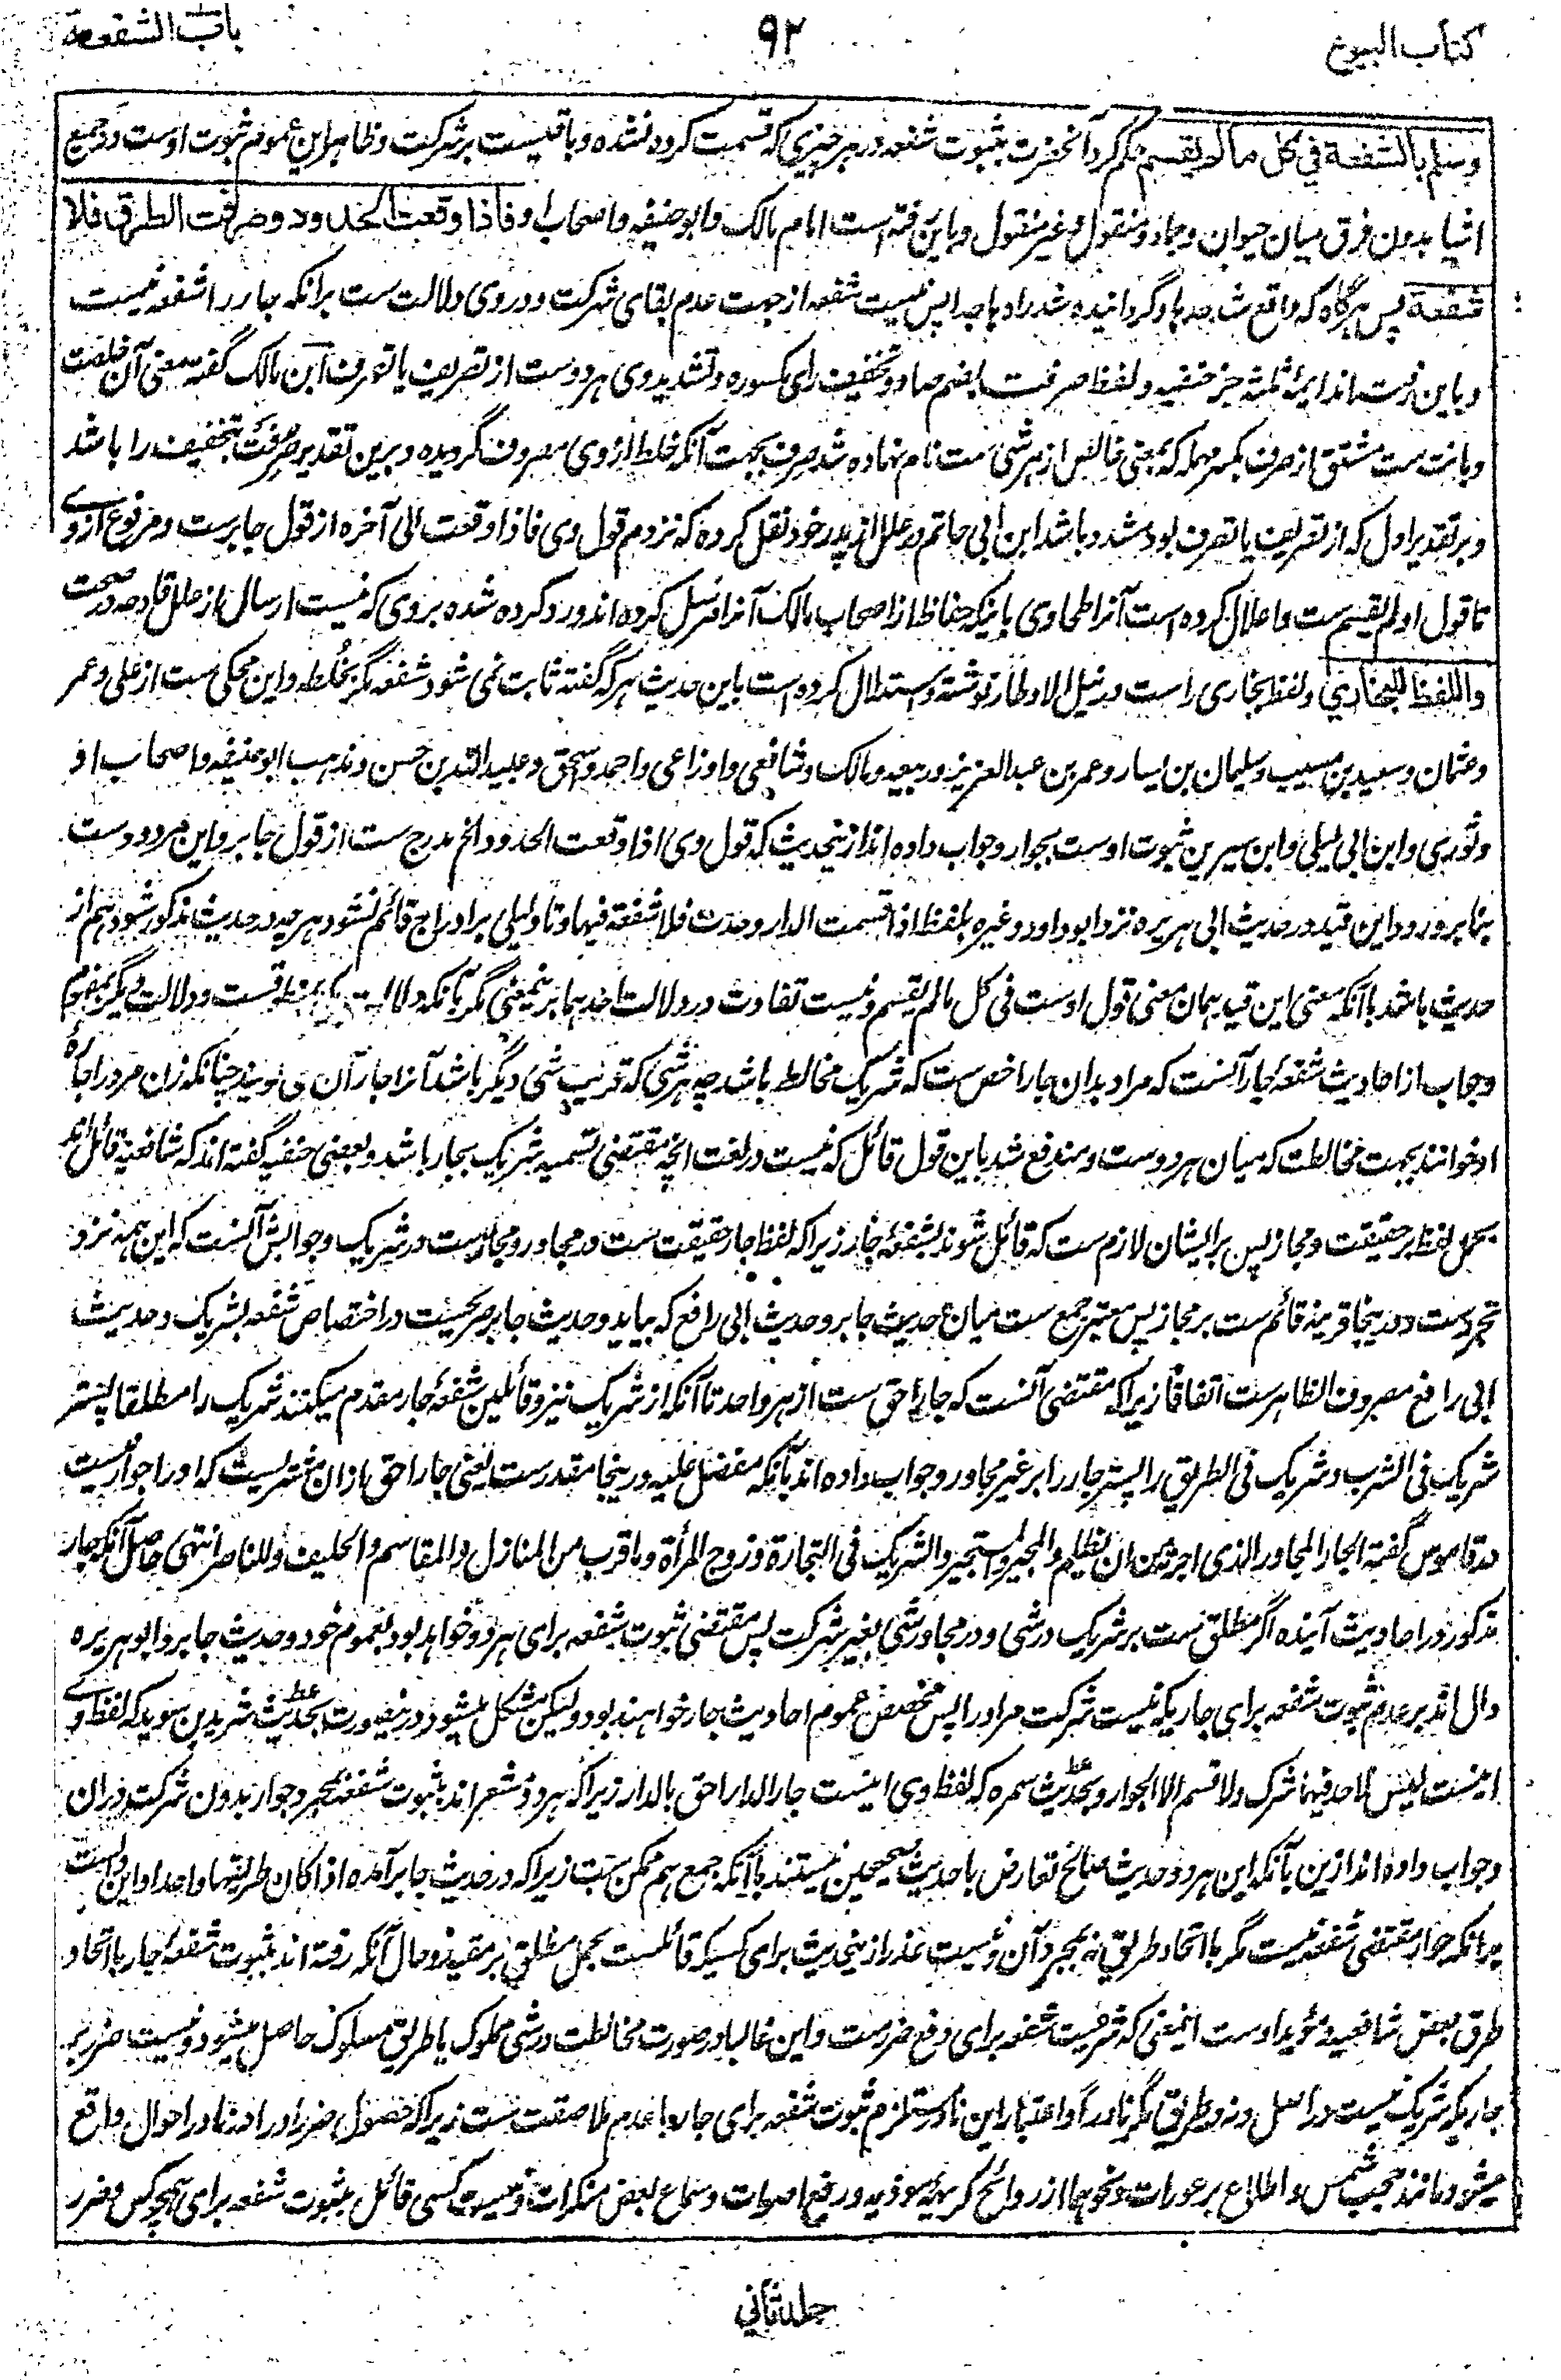 كتاب البيوع
٩٢
باب الشفعة
وسلم بالشفعة في كل ما لم يقسم حكم كرد آنحضرت بثبوت شفعه در هر چيزى كه قسمت كرده نشده و باقيست بر شركت و ظاهر اين عموم ثبوت اوست در جميع
اشيا بدون فرق ميان حيوان و جماد و منقول و غير منقول و باين رفته است امام مالك و ابو حنيفه و اصحاب او فاذا وقعت الحدود وصرفت الطرق فلا
شفعة پس هرگاه كه واقع شد حدها و گردانيده شد راه ها جدا پس نيست شفعه از جهت عدم بقاى شركت و در وى دلالت ست بر انكه جار را شفعه نيست
و باين رفته اند ايمۀ ثلثه جز حنفيه و لفظ صرفت بضم صاد و تخفيف راى مكسوره و تشديد وى هر دوست از تصريف يا تصرف ابن مالك گفته معنى آن خلصت
و بانت ست مشتق از صرف بكسر مهمله كه بمعنى خالص از هر شى ست نام نهاده شد صرف بجهت آنكه خلط از وى مصروف گرديده و برين تقدير صرفت بتخفيف را باشد
و بر تقدير اول كه از تصريف يا تصرف بود مشدد باشد ابن ابى حاتم در علل از پدر خود نقل كرده كه نزدم قول وى فاذا وقعت الى آخره از قول جابرست و مرفوع از وے
تا قول او لم يقسم ست و اعلال كرده است آنرا طحاوى باينكه حفاظ از اصحاب مالك آنرا مرسل كرده اند و رد كرده شده بر وى كه نيست ارسال از علل قادحه در صحت
واللفظ للبخاري و لفظ بخارى راست در نيل الاوطار نوشته و استدلال كرده است باين حديث هر كه گفته ثابت نمى شود شفعه مگر بخلطه و اين محكى ست از على و عمر
و عثمان و سعيد بن مسيب و سليمان بن يسار و عمر بن عبد العزيز و ربيعه و مالك و شافعى و اوزاعى و احمد و اسحق و عبيد الله بن حسن و مذهب ابو حنيفه و اصحاب او
و ثورى و ابن ابى ليلى و ابن سيرين ثبوت اوست بجوار و جواب داده اند ازينحديث كه قول وى اذا وقعت الحدود الخ مدرج ست از قول جابر و اين مردودست
بنا بر ورود اين قيد در حديث ابى هريره نزد ابو داود و غيره بلفظ اذا قسمت الدار وحدت فلا شفعة فيها و تا دليلى بر ادراج قائم نشود هر چه در حديث مذكور شود هم از
حديث باشد با آنكه معنى اين قيد همان معنى قول اوست فى كل ما لم يقسم و نيست تفاوت در دلالت احدهما برينمعنى مگر بآنكه دلالت يكى بمنطوقست و دلالت ديگر بمفهوم
و جواب از احاديث شفعۀ جار آنست كه مراد بدان جار اخص ست كه شريك مخالط باشد چه هر شى كه قريب شى ديگر باشد آنرا جار آن مى گويند چنانكه زن مرد را جارۀ
او خوانند بجهت مخالطت كه ميان هر دوست و مندفع شد باين قول قائل كه نيست در لغت انچه مقتضى تسميه شريك بجار باشد و بعضى حنفيه گفته اند كه شافعيه قائل اند
بحمل لفظ بر حقيقت و مجاز پس بر ايشان لازم ست كه قائل شوند بشفعۀ جار زيرا كه لفظ جار حقيقت ست در مجاور و مجازست در شريك و جوابش آنست كه اين همه نزد
تجردست و درينجا قرينه قائم ست بر مجاز پس معتبر جمع ست ميان حديث جابر و حديث ابى رافع كه بيايد و حديث جابر صريحست در اختصاص شفعه بشريك و حديث
ابى رافع مصروف الظاهرست اتفاقا زيرا كه مقتضى آنست كه جار احق ست از هر واحد تا آنكه از شريك نيز و قائلين شفعۀ جار مقدم ميكنند شريك را مطلقا پستر
شريك فى الشرب و شريك فى الطريق را پستر جار را بر غير مجاور و جواب داده اند بآنكه مفضل عليه درينجا مقدرست يعنى جار احق ازان مشتريست كه او را جوار نيست
در قاموس گفته الجار المجاور الذى اجرته من ان يظلم والمجير والمستجير والشريك فى التجارة وزوج المرأة وما قرب من المنازل والمقاسم والحليف والناصر انتهى حاصل آنكه جار
مذكور در احاديث آينده اگر مطلق ست بر شريك در شى و در مجاور شى بغير شركت پس مقتضى ثبوت شفعه براى هر دو خواهد بود بعموم خود و حديث جابر و ابو هريره
دال اند بر عدم ثبوت شفعه براى جاريكه نيست شركت مر او را پس مخصص عموم احاديث جار خواهند بود و ليكن مشكل ميشود درينصورت بحديث شريد بن سويد كه لفظ وے
اينست ليس لاحد فيها شرك ولا قسم الا الجوار و بحديث سمره كه لفظ وى اينست جار الدار احق بالدار زيرا كه هر دو مشعر اند بثبوت شفعه بمجرد جوار بدون شركت دران
و جواب داده اند ازين بآنكه اين هر دو حديث صالح تعارض با حديث صحيحين نيستند با آنكه جمع هم ممكن ست زيرا كه در حديث جابر آمده اذا كان طريقهما واحدا و اين دالست
برانكه جوار مقتضى شفعه نيست مگر با اتحاد طريق نه بمجرد آن و نيست عذر ازينحديث براى كسيكه قائلست بحمل مطلق بر مقيد و حال آنكه رفته اند بثبوت شفعۀ جار با اتحاد
طرق بعض شافعيه و مؤيد اوست اينمعنى كه شرعيت شفعه براى دفع ضررست و اين غالبا در صورت مخالطت در شى مملوك يا طريق مسلوك حاصل ميشود و نيست ضرر بر
جاريكه شريك نيست در اصل و نه در طريق مگر نادرا و اعتبار اين نادر مستلزم ثبوت شفعه براى جار با عدم ملاصقت ست زيرا كه حصول ضرر او را در نادر احوال واقع
ميشود مانند حجب شمس و اطلاع بر عورات و نحوها از روائح كريهه موذيه و رفع اصوات و سماع بعض منكرات و نيست كسى قائل بثبوت شفعه براى هيچكس و ضرر
جلد ثانى